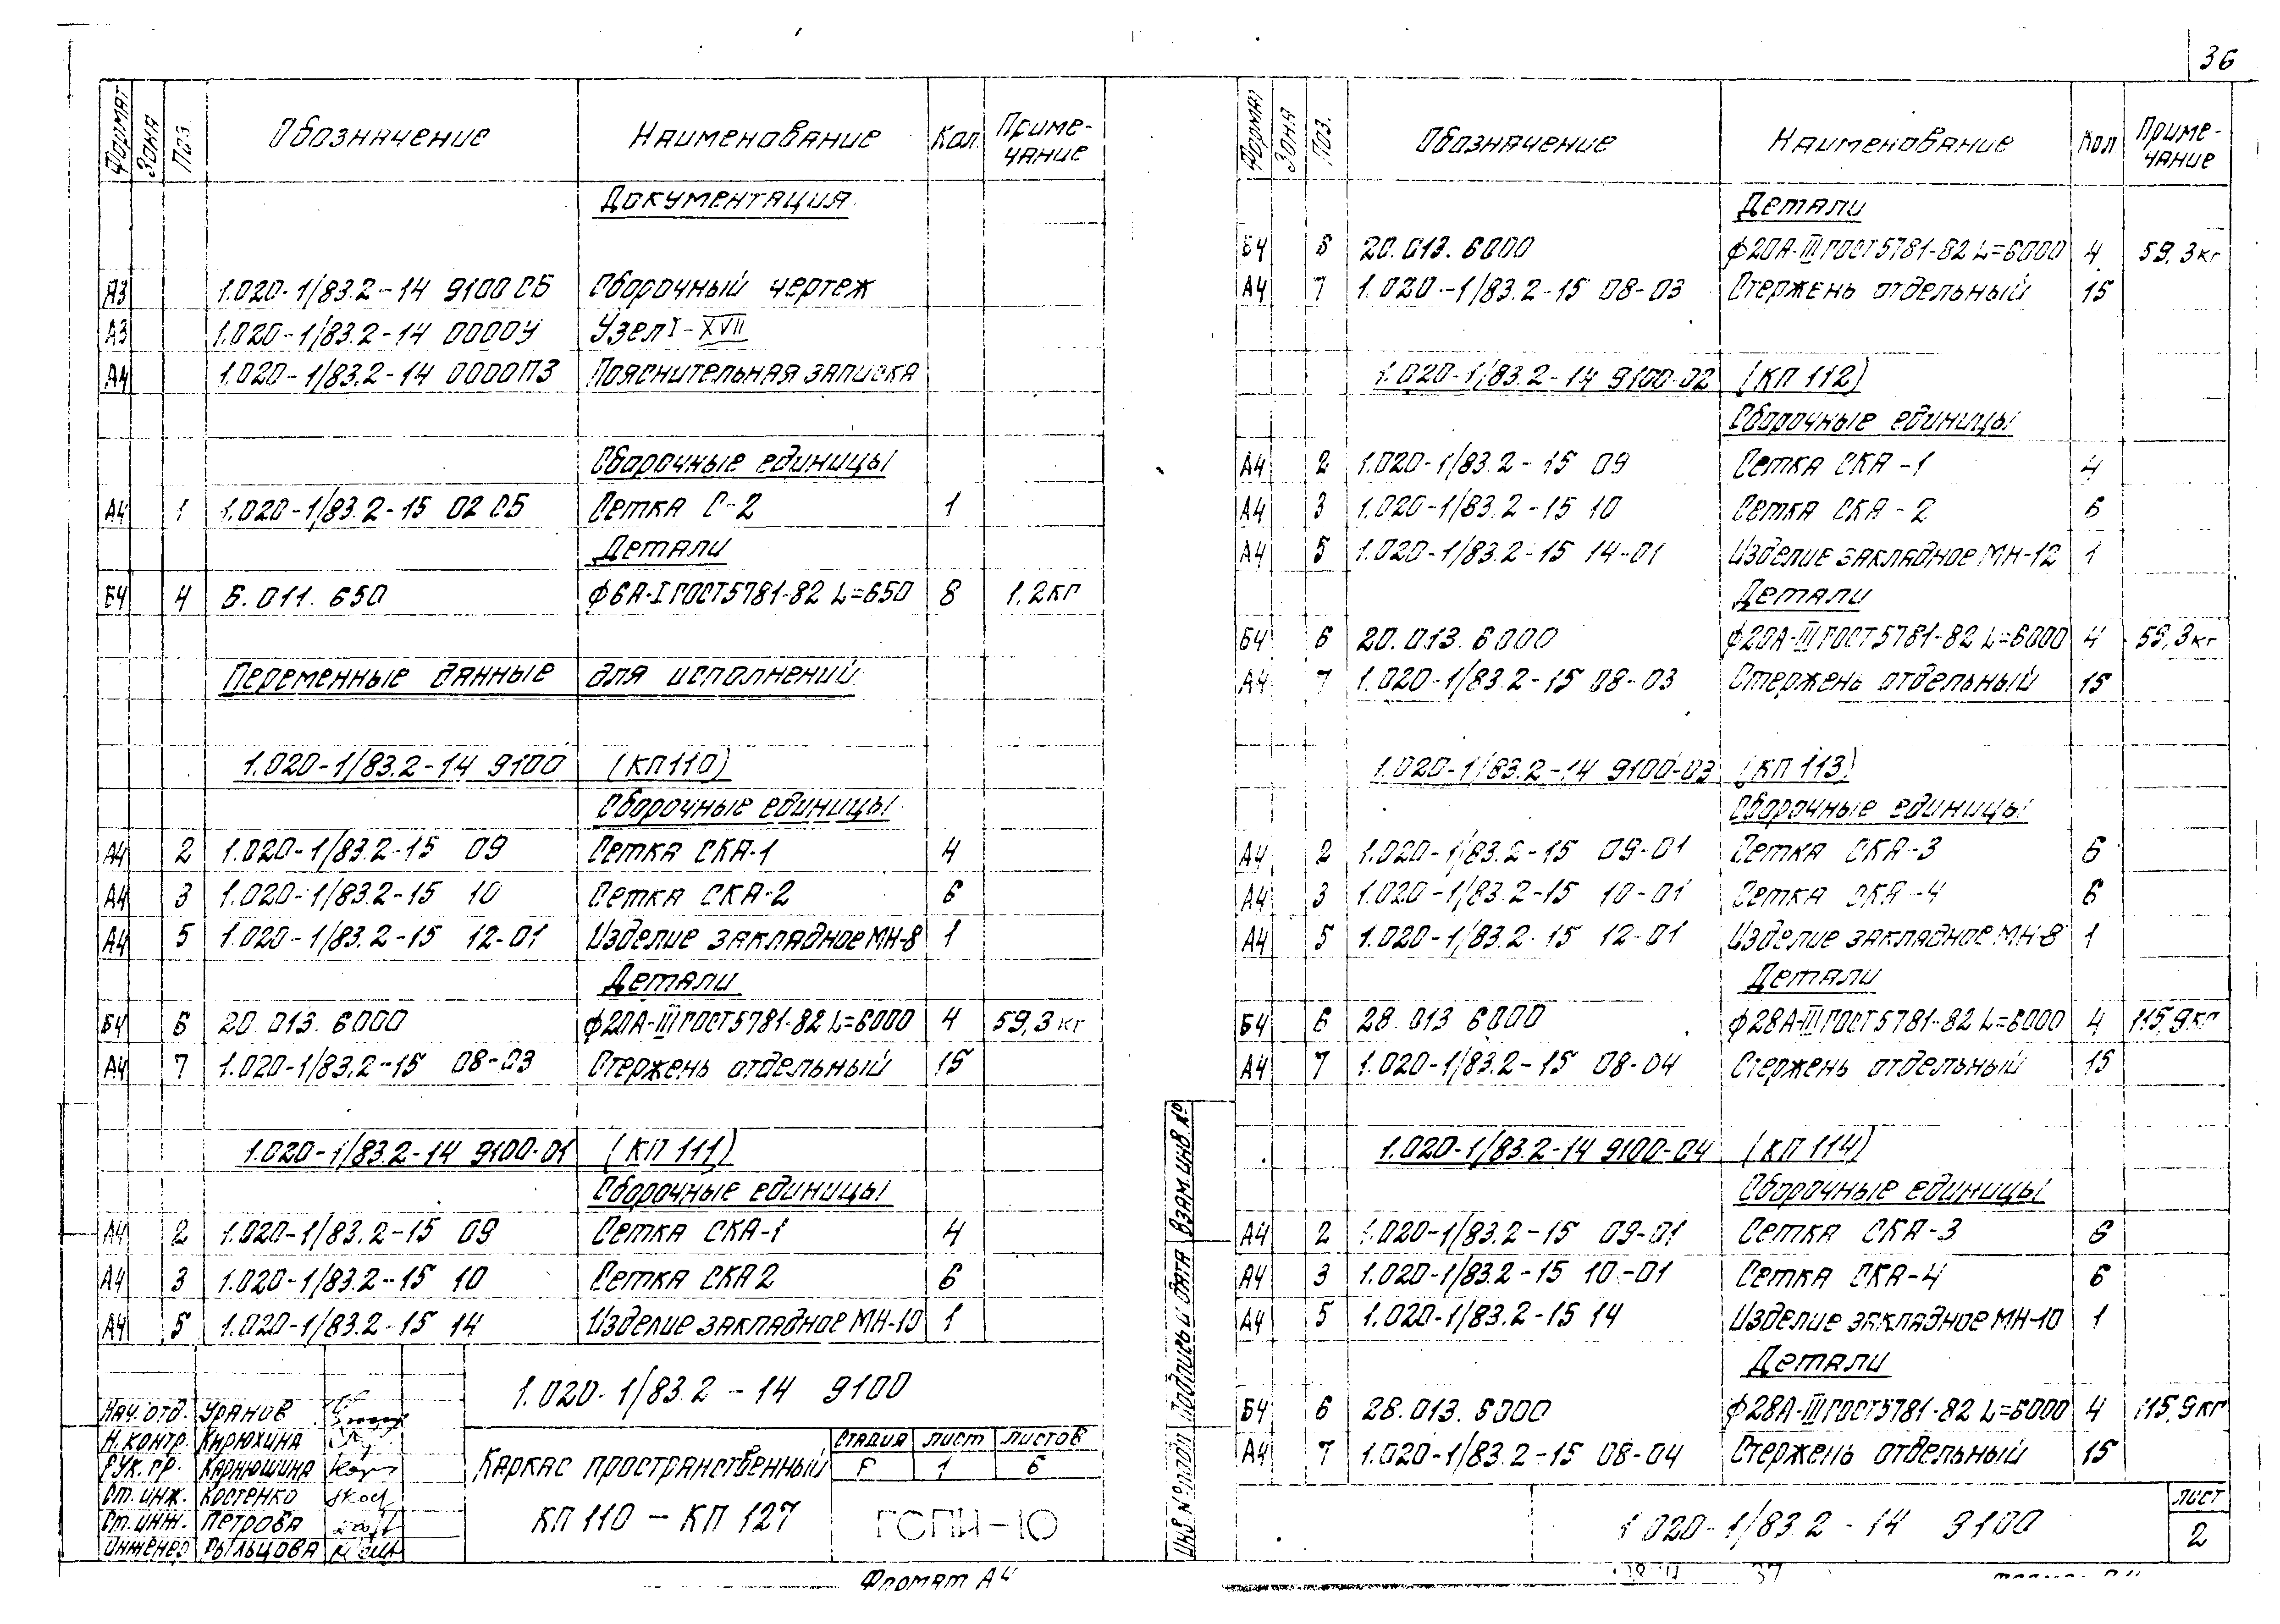 36
Формат Зона Поз. Обозначение Наименование Кол. Приме-
чание
Документация
А3 1.020-1/83.2-14 9100СБ Сборочный чертеж
А3 1.020-1/83.2-14 0000У Узел I-XVII
А4 1.020-1/83.2-14 0000ПЗ Пояснительная записка
Сборочные единицы
А4 1 1.020-1/83.2-15 02 СБ Сетка С-2 1
Детали
Б4 4 6.011.650 ф6А-I ГОСТ 5781-82 L=650 8 1,2кг
Переменные данные для исполнений
1.020-1/83.2-14 9100 (КП110)
Сборочные единицы
А4 2 1.020-1/83.2-15 09 Сетка СКА-1 4
А4 3 1.020-1/83.2-15 10 Сетка СКА-2 6
А4 5 1.020-1/83.2-15 12-01 Изделие закладное МН-8 1
Детали
Б4 6 20.013.6000 ф20А-III ГОСТ 5781-82 L=6000 4 59,3кг
А4 7 1.020-1/83.2-15 08-03 Стержень отдельный 15
1.020-1/83.2-14 9100-01 (КП 111)
Сборочные единицы
А4 2 1.020-1/83.2-15 09 Сетка СКА-1 4
А4 3 1.020-1/83.2-15 10 Сетка СКА 2 6
А4 5 1.020-1/83.2-15 14 Изделие закладное МН-10 1
1.020-1/83.2-14 9100
Нач. отд. Уранов
Н. контр. Кирюхина
Рук. гр. Карнюшина
Ст. инж. Костенко
Ст. инж. Петрова
Инженер Рыльцова
Каркас пространственный
КП 110 - КП 127
Стадия Лист Листов
Р 1 6
ГСПИ-10
Формат А4
Формат Зона Поз. Обозначение Наименование Кол. Приме-
чание
Детали
Б4 6 20.013.6000 ф20А-III ГОСТ 5781-82 L=6000 4 59,3кг
А4 7 1.020-1/83.2-15 08-03 Стержень отдельный 15
1.020-1/83.2-14 9100-02 (КП 112)
Сборочные единицы
А4 2 1.020-1/83.2-15 09 Сетка СКА-1 4
А4 3 1.020-1/83.2-15 10 Сетка СКА-2 6
А4 5 1.020-1/83.2-15 14-01 Изделие закладное МН-12 1
Детали
Б4 6 20.013.6000 ф20А-III ГОСТ 5781-82 L=6000 4 59,3кг
А4 7 1.020-1/83.2-15 08-03 Стержень отдельный 15
1.020-1/83.2-14 9100-03 (КП 113)
Сборочные единицы
А4 2 1.020-1/83.2-15 09-01 Сетка СКА-3 6
А4 3 1.020-1/83.2-15 10-01 Сетка СКА-4 6
А4 5 1.020-1/83.2-15 12-01 Изделие закладное МН-8 1
Детали
Б4 6 28.013.6000 ф28А-III ГОСТ 5781-82 L=6000 4 115,9кг
А4 7 1.020-1/83.2-15 08-04 Стержень отдельный 15
1.020-1/83.2-14 9100-04 (КП 114)
Сборочные единицы
А4 2 1.020-1/83.2-15 09-01 Сетка СКА-3 6
А4 3 1.020-1/83.2-15 10-01 Сетка СКА-4 6
А4 5 1.020-1/83.2-15 14 Изделие закладное МН-10 1
Детали
Б4 6 28.013.6000 ф28А-III ГОСТ 5781-82 L=6000 4 115,9кг
А4 7 1.020-1/83.2-15 08-04 Стержень отдельный 15
Инв. № подл. Подпись и дата Взам. инв. №
1.020-1/83.2-14 9100
Лист
2
37